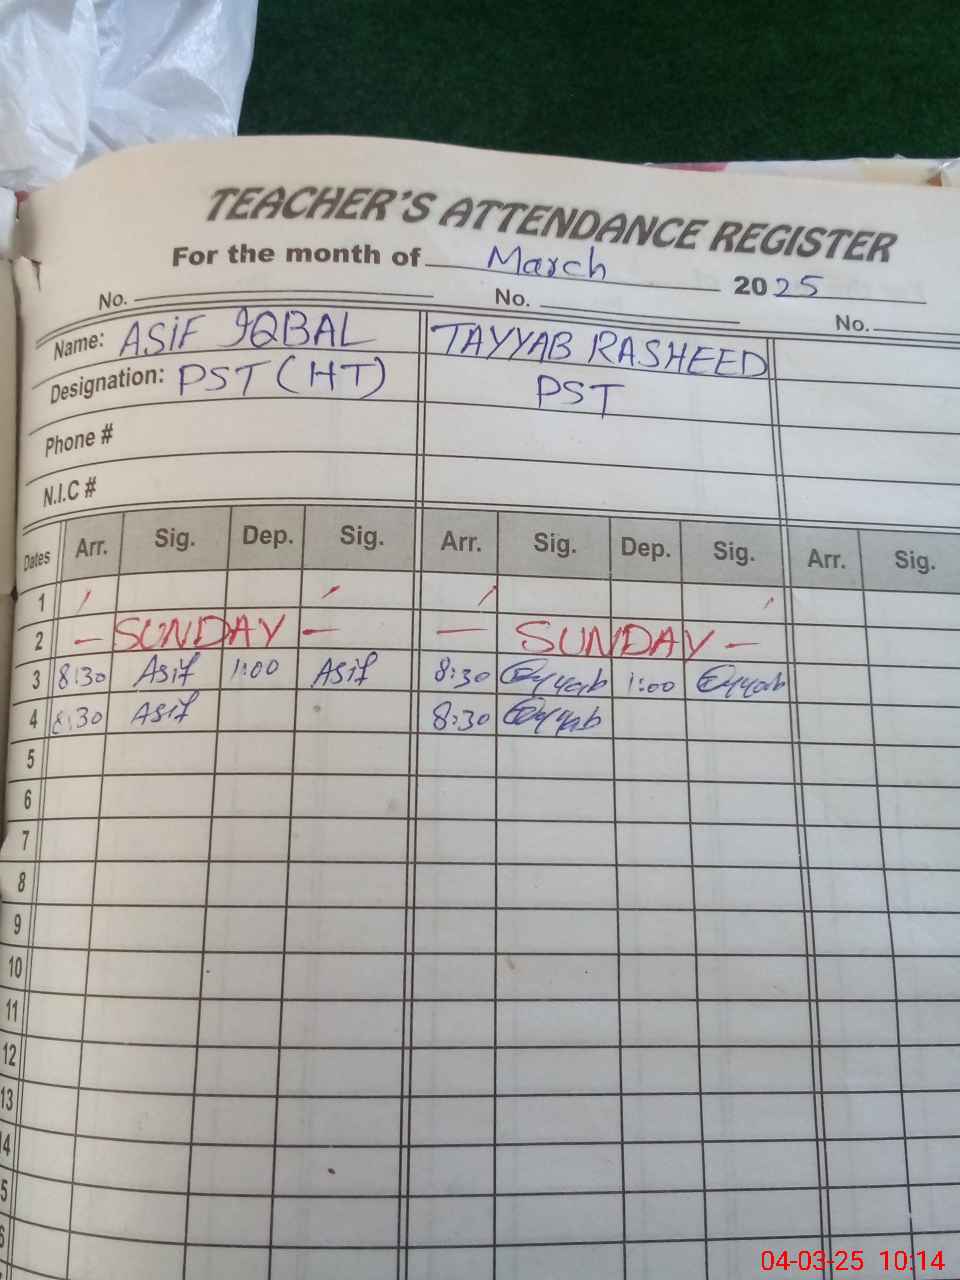 TEACHER'S ATTENDANCE REGISTER
For the month of March 2025
No. No. No.
Name: ASiF IQBAL TAYYAB RASHEED
Designation: PST (HT) PST
Phone #
N.I.C #
Dates Arr. Sig. Dep. Sig. Arr. Sig. Dep. Sig. Arr. Sig.
1
2 - SUNDAY - - SUNDAY -
3 8:30 Asif 1:00 Asif 8:30 1:00
4 8:30 Asif 8:30
5
6
7
8
9
10
11
12
13
14
5
6
04-03-25 10:14